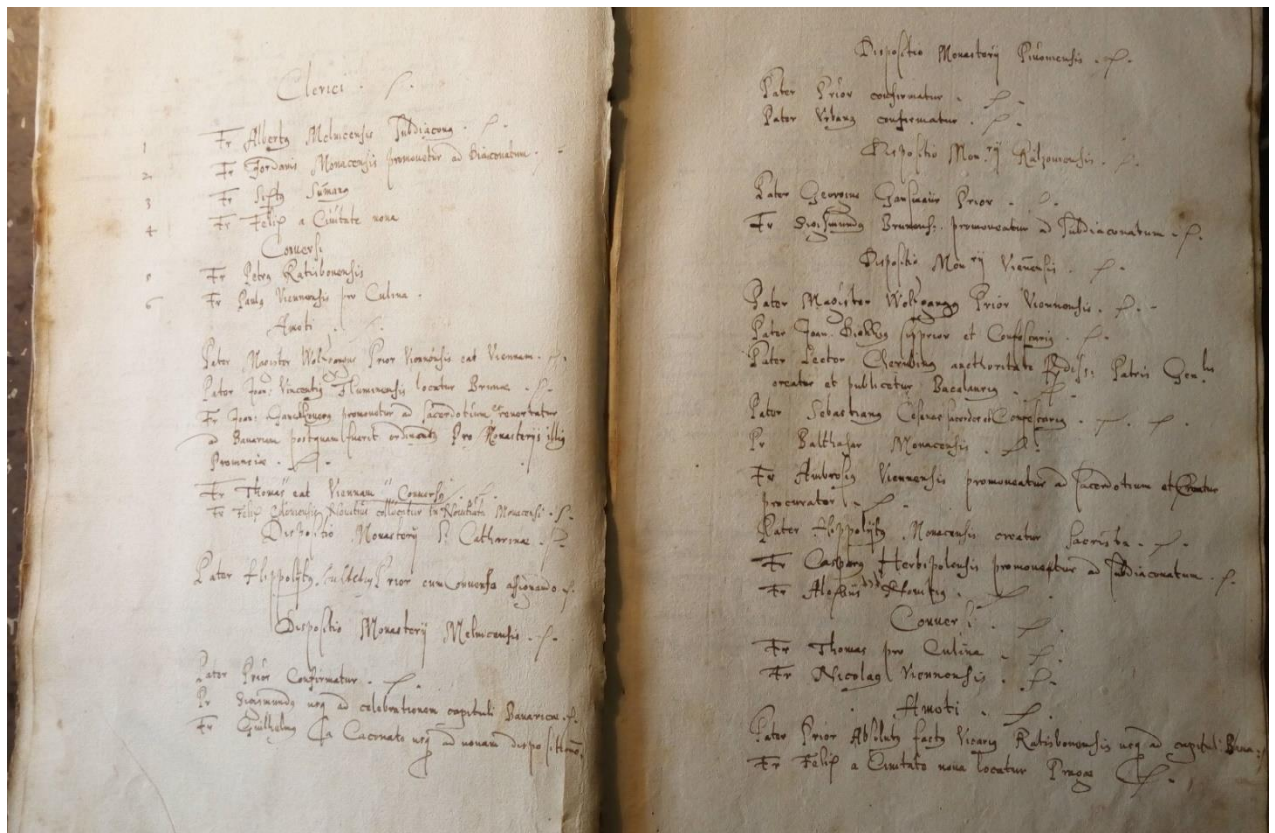 Clerici.
1 Fr Albertg Melnicensis Subdiacong.
2 Fr Jordanis Monacensis promovetur ad Diaconatum.
3 Fr Sixtg
4 Fr Felix a Civitate nova
Conversi
Fr Petrg Ratisbonensis
6 Fr Paulg Viennensis pro Culina.
Amoti
Pater Magister Wolfgangus Prior Viennensis eat Viennam.
Pater Joan: Vincentig Fluminensis locatur Brunae.
Fr Joan: promovetur ad Sacerdotium et revertatur
ad Bavariam postquam fuerit ordinatg Pro Monasterijs illig
Provinciae.
Fr Thomas eat Viennam Conversg
Fr Felix Novitius collocetur in Novitiatu Monacensi.
Dispositio Monasterij S. Catharinae.
Pater Hippolytg Prior cum Converso assignando.
Dispositio Monasterij Melnicensis.
Pater Prior Confirmatur.
Pr Sigismundg usq ad celebrationem capituli Bavarici.
Fr Guilhelmg a usq ad novam dispositionem.
Dispositio Monasterij Pivonensis.
Pater Prior confirmatur.
Pater Urbang confirmatur.
Dispositio Mon.rij
Pater Georgius Prior.
Fr Sigismundg Brunens: promoveatur ad Subdiaconatum.
Dispositio Mon rij Viennensis.
Pater Magister Wolfgangg Prior Viennensis.
Pater Joan. Supprior et Confessarig.
Pater Lector Cherubing aucthoritate Rdiss: Patris Gen.lis
creatur et publicetur Bacalaurig.
Pater Sebastiang Sacerdos et Confessarig
Pr Balthasar Monacensis.
Fr Ambrosig Viennensis promoveatur ad Sacerdotium et Creatur
procurator.
Pater Hippolytg Monacensis creatur Sacrista.
Fr Casparg Herbipolensis promoveatur ad Subdiaconatum.
Fr Aloysius
Conversi
Fr Thomas pro Culina
Fr Nicolag Viennensis.
Amoti.
Pater Prior Absolutg factg Vicarig Ratisbonensis usq ad capituli
Fr Felix a Civitate nova locatur Pragae